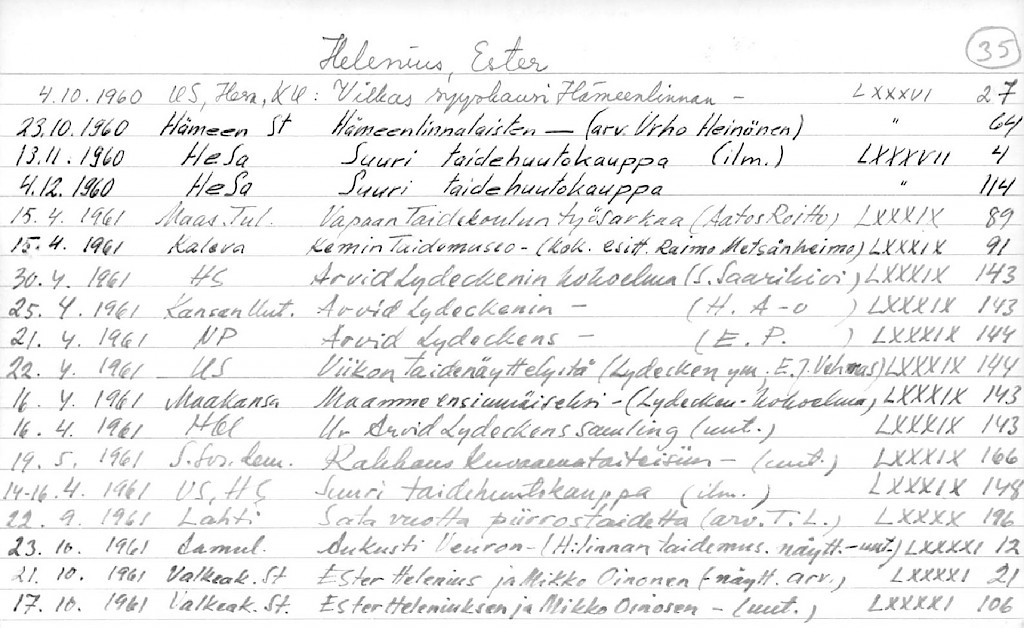 35
Helenius, Ester
4.10.1960 US, Hesa, KU: Vilkas syyskausi Hämeenlinnan – LXXXVI 27
23.10.1960 Hämeen St Hämeenlinnalaisten — (arv. Urho Heinänen) " 64
13.11.1960 HeSa Suuri taidehuutokauppa (ilm.) LXXXVII 4
4.12.1960 HeSa Suuri taidehuutokauppa " 114
15.4.1961 Maas. Tul. Vapaan Taidekoulun työsarkaa (Aatos Roitto) LXXXIX 89
15.4.1961 Kaleva Kemin Taidemuseo - (kok. esitt. Raimo Metsänheimo) LXXXIX 91
30.4.1961 HS Arvid Lydeckenin kokoelma (S. Saarikivi) LXXXIX 143
25.4.1961 Kansan Uut. Arvid Lydeckenin – (H. A-o) LXXXIX 143
21.4.1961 NP Arvid Lydeckens – (E. P. ) LXXXIX 144
22.4.1961 US Viikon taidenäyttelyitä (Lydecken ym, E.J. Vehmas) LXXXIX 144
16.4.1961 Maakansa Maamme ensimmäiseksi - (Lydecken-kokoelma) LXXXIX 143
16.4.1961 Hbl Ur Arvid Lydeckens samling (uut.) LXXXIX 143
19.5.1961 S. Sos. dem. Rakkaus kuvaamataiteisiin – (uut.) LXXXIX 166
14-16.4.1961 US, HS Suuri taidehuutokauppa (ilm.) LXXXIX 148
22.9.1961 Lahti Sata vuotta piirrostaidetta (arv. T. L.) LXXXX 196
23.10.1961 Aamul. Aukusti Veuron - (H:linnan taidemus. näytt. - uut.) LXXXXI 12
21.10.1961 Valkeak. St Ester Helenius ja Mikko Oinonen (- näytt. arv.) LXXXXI 21
17.10.1961 Valkeak. St. Ester Heleniuksen ja Mikko Oinosen – (uut.) LXXXXI 106